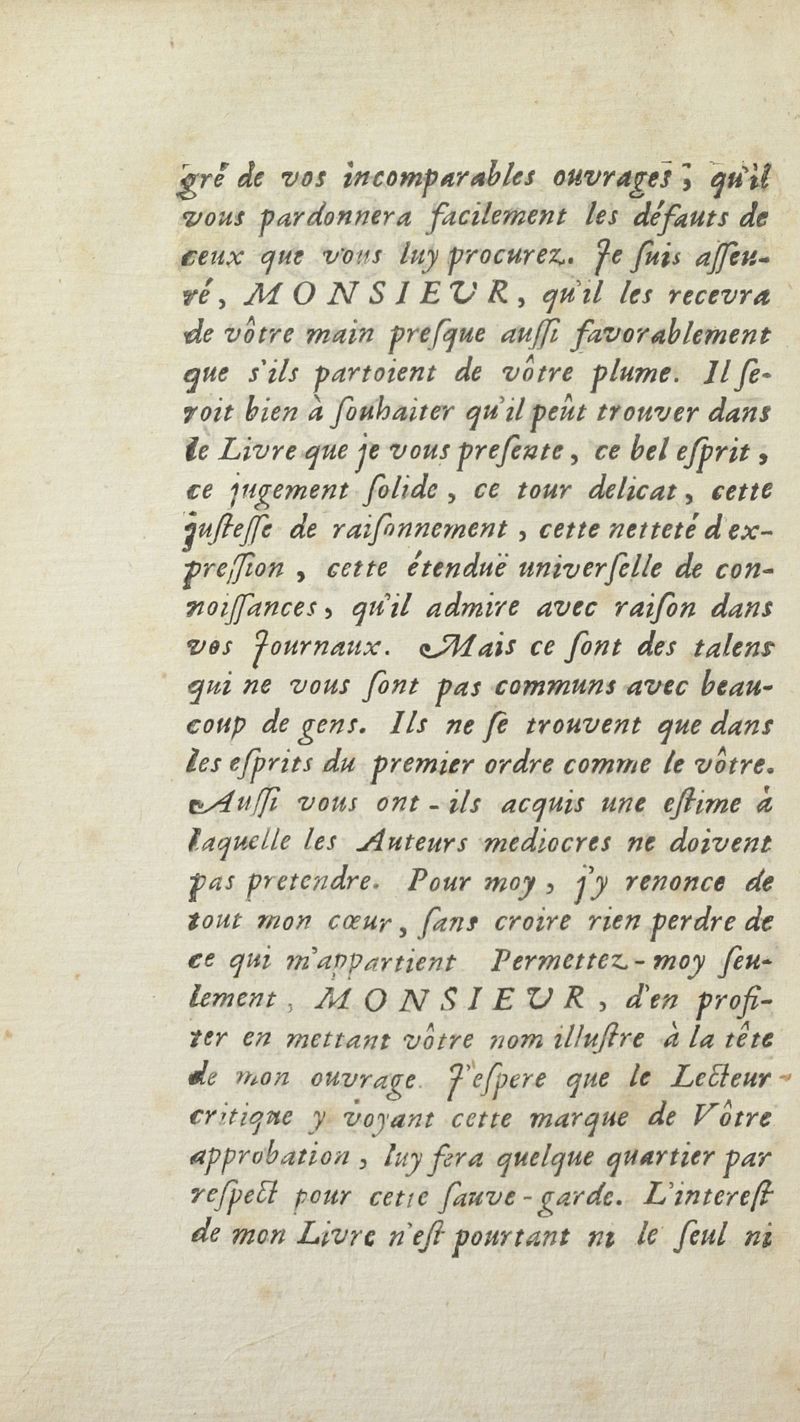 gré de vos incomparables ouvrages ; qu'il
vous pardonnera facilement les défauts de
ceux que vous luy procurez. Je ſuis aſſeu-
ré, MONSIEUR, qu'il les recevra
de vôtre main preſque auſſi favorablement
que s'ils partoient de vôtre plume. Il ſe-
roit bien à ſouhaiter qu'il peût trouver dans
le Livre que je vous preſente, ce bel eſprit,
ce jugement ſolide, ce tour delicat, cette
juſteſſe de raiſonnement, cette netteté d'ex-
preſſion, cette étenduë univerſelle de con-
noiſſances, qu'il admire avec raiſon dans
vos Journaux. Mais ce ſont des talens
qui ne vous ſont pas communs avec beau-
coup de gens. Ils ne ſe trouvent que dans
les eſprits du premier ordre comme le vôtre.
Auſſi vous ont-ils acquis une eſtime à
laquelle les Auteurs mediocres ne doivent
pas pretendre. Pour moy, j'y renonce de
tout mon cœur, ſans croire rien perdre de
ce qui m'appartient Permettez-moy ſeu-
lement, MONSIEUR, d'en profi-
ter en mettant vôtre nom illuſtre à la tête
de mon ouvrage. J'eſpere que le Lecteur
critique y voyant cette marque de Vôtre
approbation, luy fera quelque quartier par
reſpect pour cette ſauve-garde. L'intereſt
de mon Livre n'eſt pourtant ni le ſeul ni